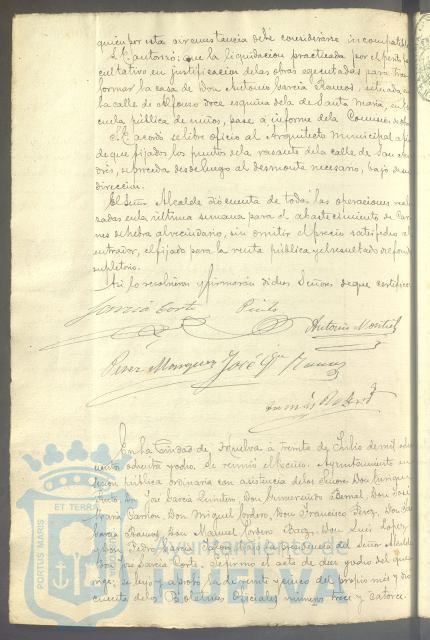 quien por esta circunstancia debe considerarse incompatible
Se autorizó: que la liquidación practicada por el perito fa
cultativo en justificación de las obras ejecutadas para trans
formar la casa de Don Antonio García Ramos, situada en
la calle de Alfonso doce esquina de la de Santa María, en Es
cuela pública de niños, pase a informe de la Comisión de
Se acordó se libre oficio al Arquitecto Municipal a fin
de que fijados los puntos de la rasante de la calle de San An
drés, se proceda desde luego al desmonte necesario, bajo su
dirección.
El Señor Alcalde dió cuenta de todas las operaciones reali
zadas en la última semana para el abastecimiento de Car
nes de hebra al vecindario, sin omitir el precio satisfecho al
entrador, el fijado para la venta pública y el resultado del fondo
supletorio.
Así lo resolvieron y firmarán dichos Señores de que certifico
García Cortés Pinto Antonio Montiel
Perez Marquez José Gª Ramos
En la Ciudad de Huelva a treinta de Julio de mil ocho
cientos ochenta y ocho. Se reunió el Excmo. Ayuntamiento en
sesión pública ordinaria con asistencia de los Señores Don Enrique
Don José García Don Bernal, Don José
María Don Miguel Cordero, Don Francisco Perez, Don
García Ramos, Don Manuel Cordero Báez, Don Luis Lopez
y Don Pedro bajo la presidencia del Señor Alcalde
Don José García Cortés. Se firmó el acta de diez y ocho del que
rige; se leyó y aprobó la de veinte y cinco del propio mes y dió
cuenta de los Boletines Oficiales números trece y catorce
PORTUS MARIS ET TERRAE
Ayuntamiento de
HUELVA